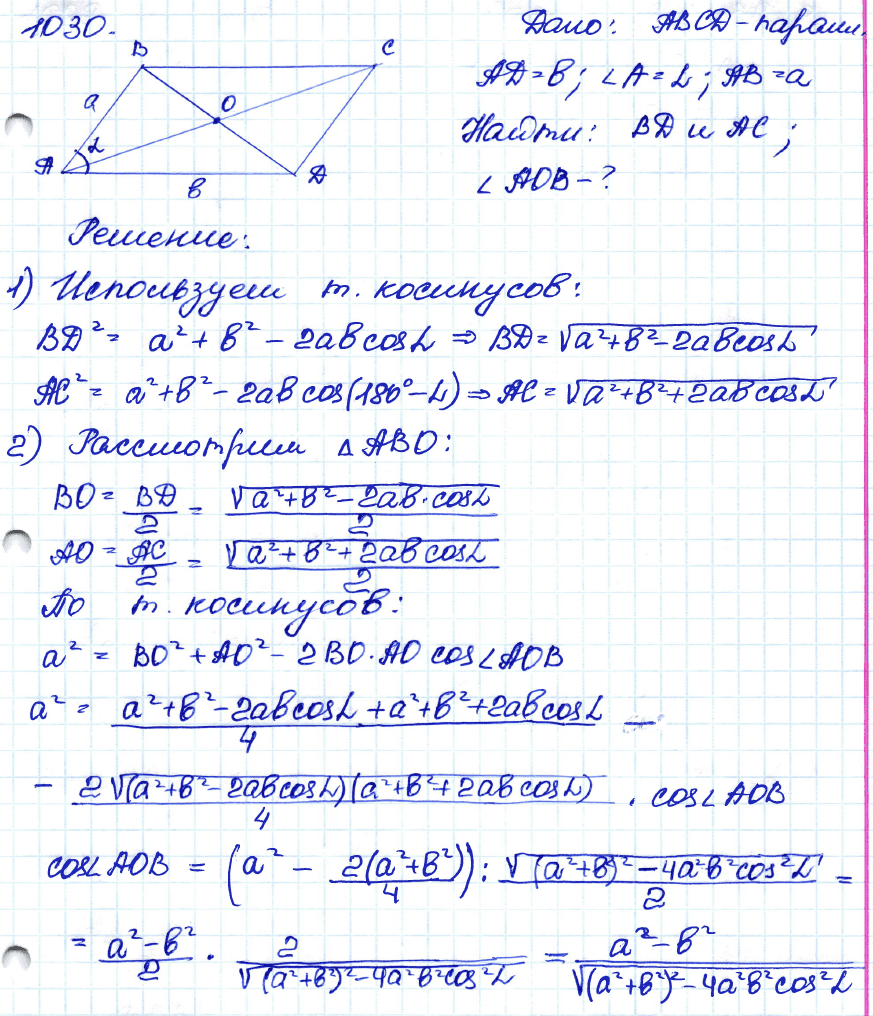 1030.
Дано: ABCD – парал.
AD = b; ∠A = α; AB = a
Найти: BD и AC;
∠AOB – ?
B C
a O
A α D
b
Решение:
1) Используем т. косинусов:
BD² = a² + b² − 2ab cosα ⇒ BD = √(a²+b²−2ab cosα)
AC² = a² + b² − 2ab cos(180°−α) ⇒ AC = √(a²+b²+2ab cosα)
2) Рассмотрим △ABO:
BO = BD/2 = √(a²+b²−2ab·cosα)/2
AO = AC/2 = √(a²+b²+2ab cosα)/2
По т. косинусов:
a² = BO² + AO² − 2BO·AO cos∠AOB
a² = (a²+b²−2ab cosα + a²+b²+2ab cosα)/4 −
− 2√((a²+b²−2ab cosα)(a²+b²+2ab cosα))/4 · cos∠AOB
cos∠AOB = (a² − 2(a²+b²)/4) : √((a²+b)² − 4a²b²cos²α)/2 =
= (a²−b²)/2 · 2/√((a²+b²)²−4a²b²cos²α) = (a²−b²)/√((a²+b²)²−4a²b²cos²α)